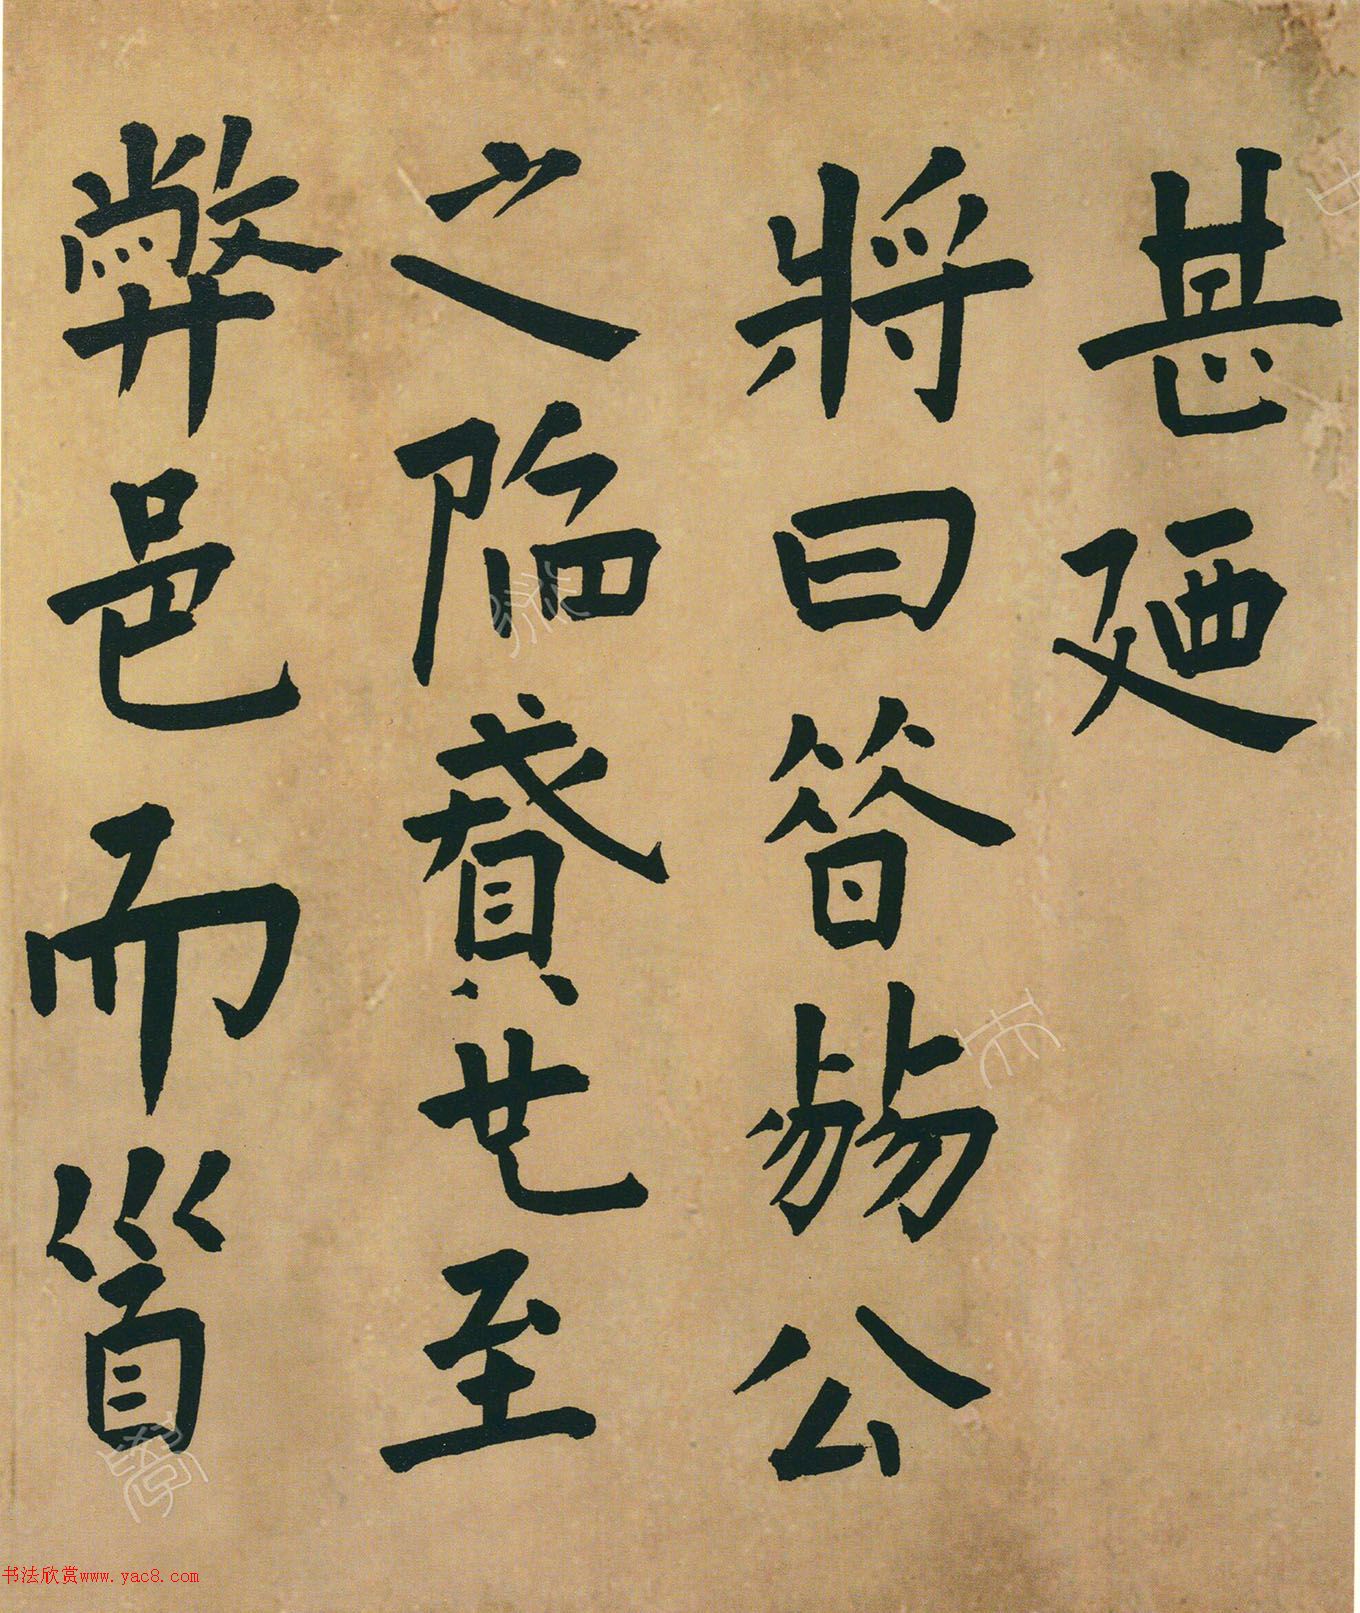 甚廼
將曰答公
之陷賷世至
弊邑而𩠐
书法欣赏www.yac8.com